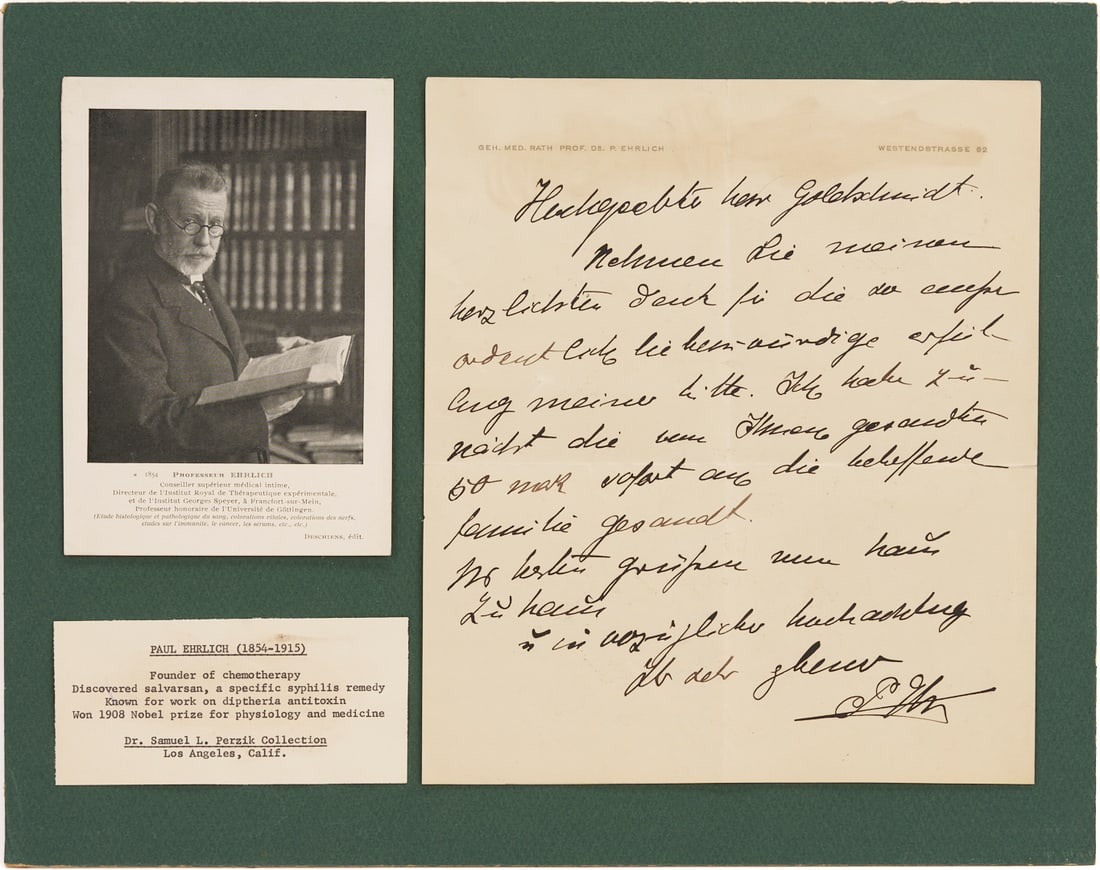 * 1854 PROFESSEUR EHRLICH
Conseiller supérieur médical intime,
Directeur de l'Institut Royal de Thérapeutique expérimentale,
et de l'Institut Georges Speyer, à Francfort-sur-Mein,
Professeur honoraire de l'Université de Göttingen.
(Étude histologique et pathologique du sang, colorations vitales, colorations des nerfs,
études sur l'immunité, le cancer, les sérums, etc., etc.)
DESCHIENS, édit.
PAUL EHRLICH (1854-1915)
Founder of chemotherapy
Discovered salvarsan, a specific syphilis remedy
Known for work on diptheria antitoxin
Won 1908 Nobel prize for physiology and medicine
Dr. Samuel L. Perzik Collection
Los Angeles, Calif.
GEH. MED. RATH PROF. DR. P. EHRLICH WESTENDSTRASSE 62
Hochgeehrter Herr Goldschmidt.
Nehmen Sie meinen
herzlichsten Dank für die so außer
ordentlich liebenswürdige erfül-
lung meiner bitte. Ich habe zu-
nächst die von Ihnen gesandten
50 mark sofort an die betreffende
familie gesandt.
Mit besten grüßen von haus
zu haus
u in vorzüglicher hochachtung
Ihr sehr ergebener
P Ehrlich